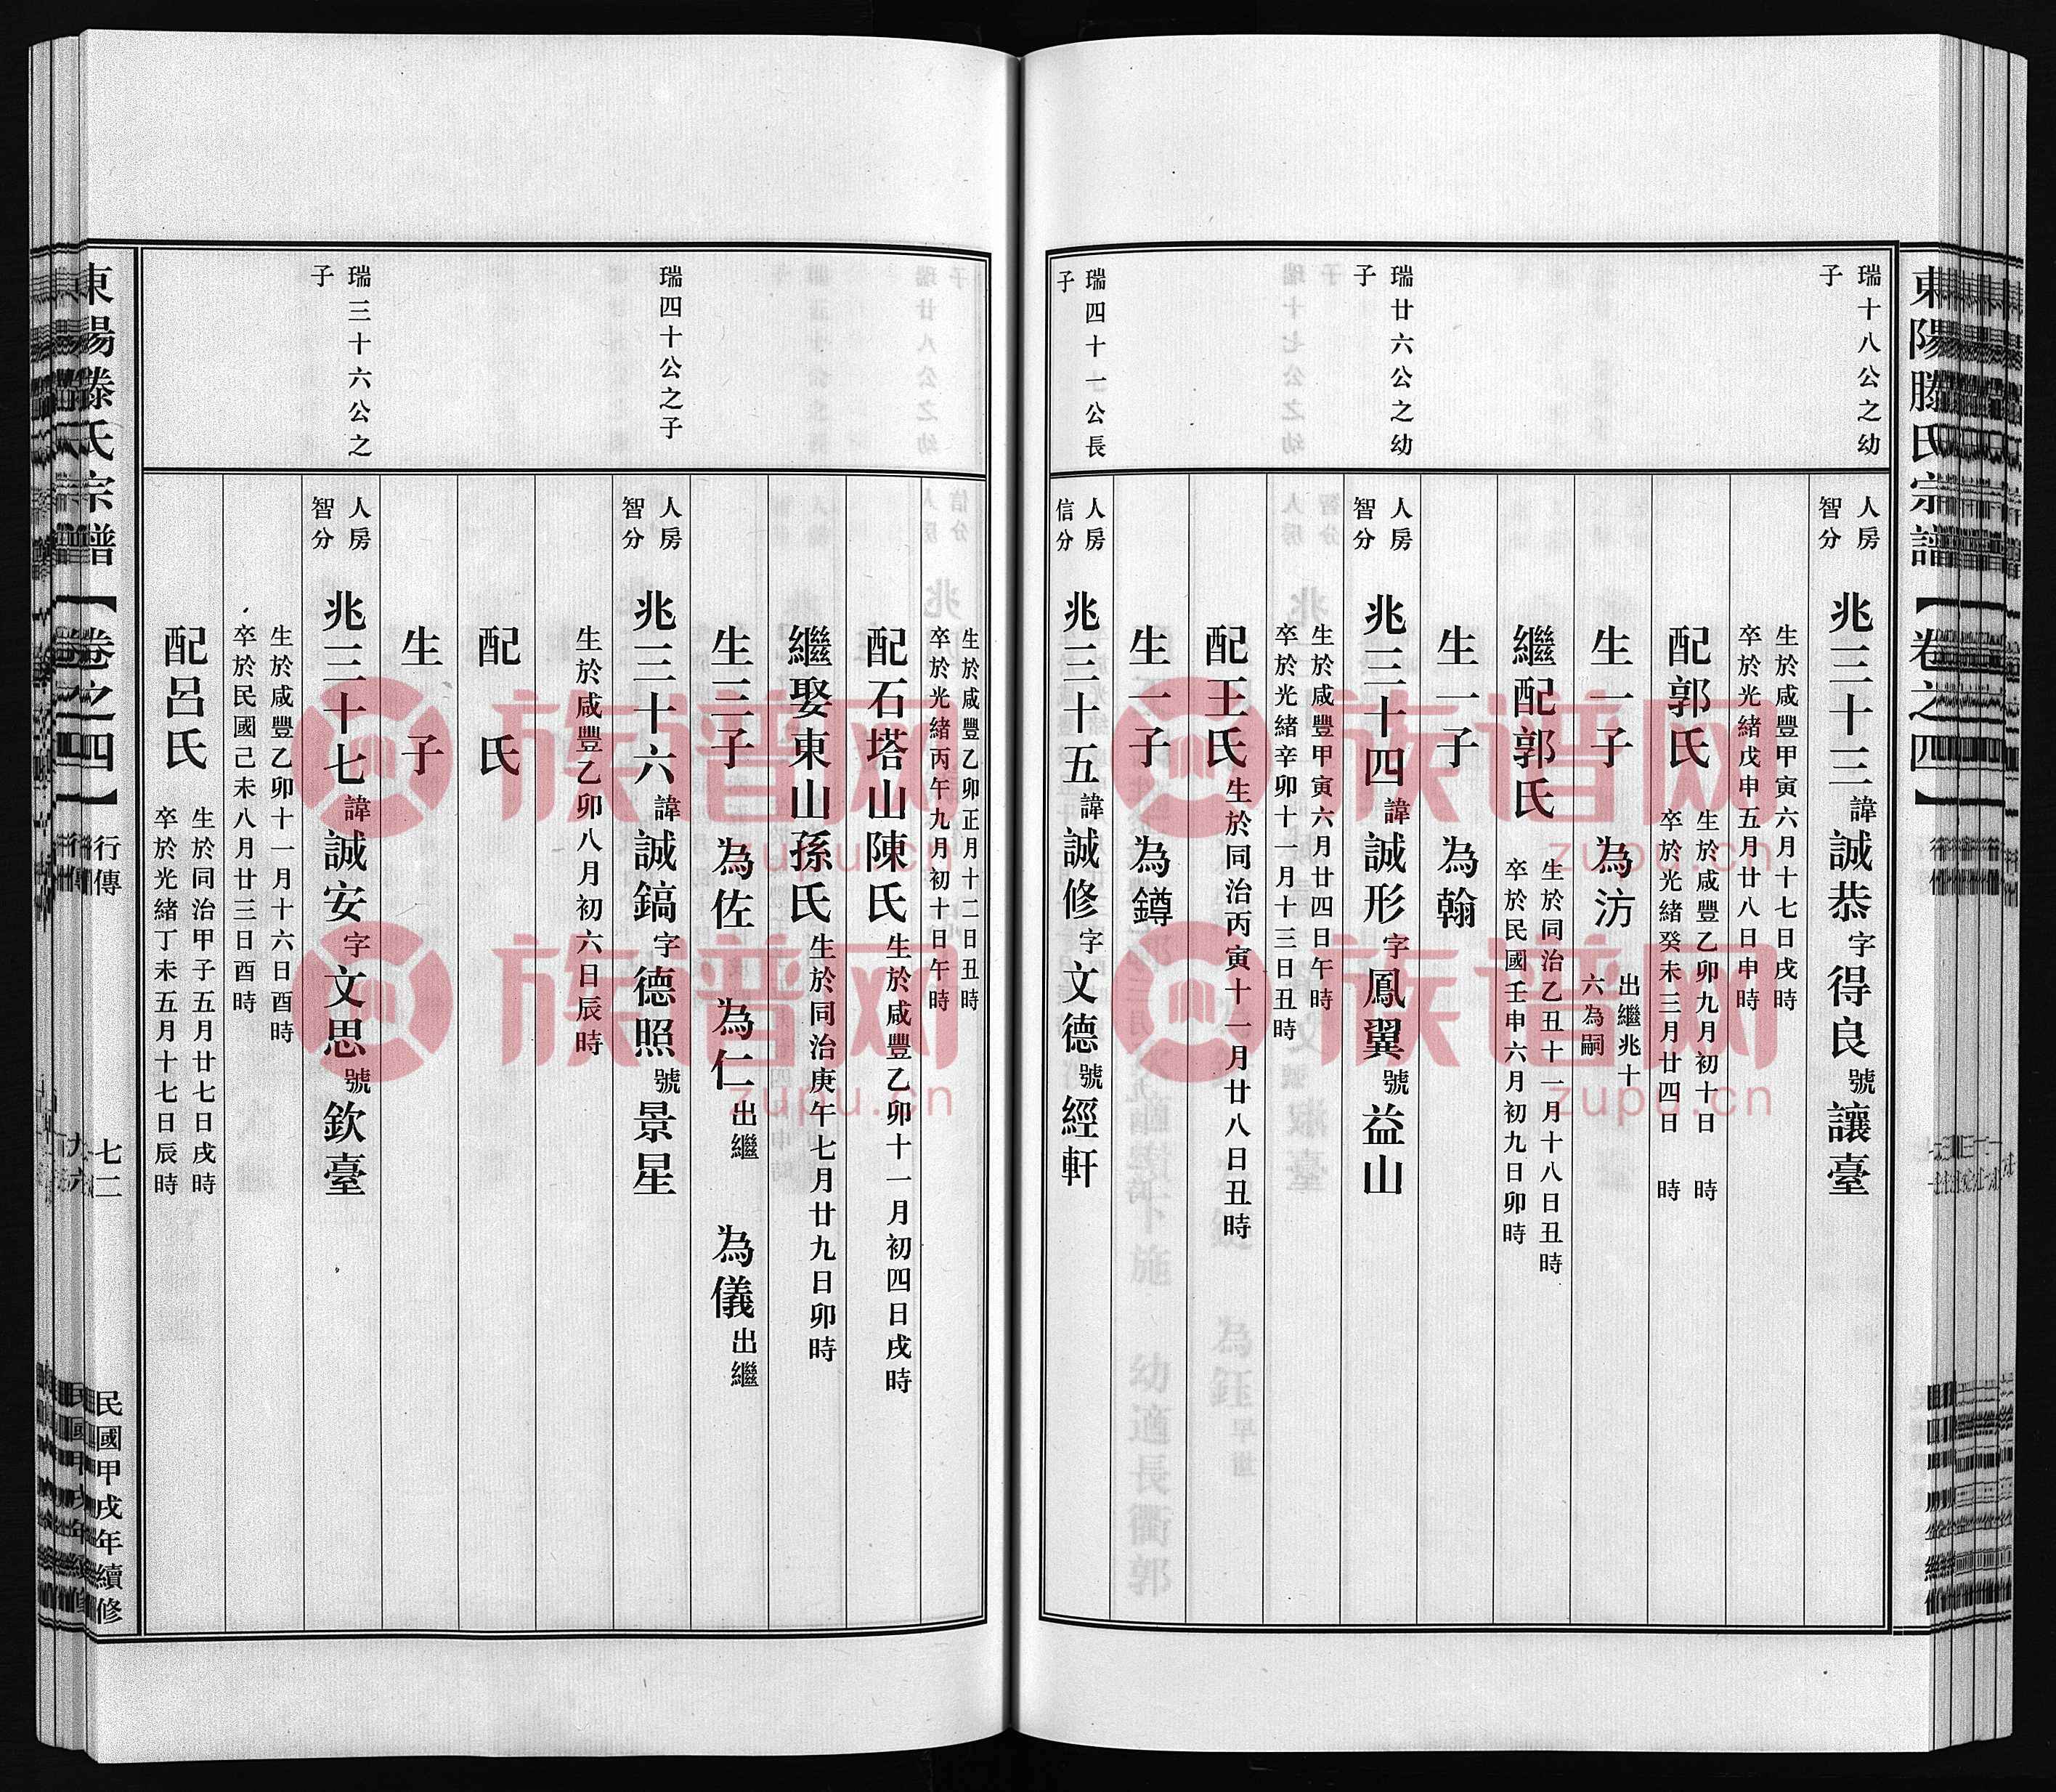 東陽滕氏宗譜【卷之四】
瑞十八公之幼
子
人房
智分
兆三十三諱誠恭字得良號讓臺
生於咸豐甲寅六月十七日戌時
卒於光緒戊申五月廿八日申時
配郭氏
生於咸豐乙卯九月初十日 時
卒於光緒癸未三月廿四日 時
生一子 為汸
出繼兆十
六為嗣
繼配郭氏
生於同治乙丑十一月十八日丑時
卒於民國壬申六月初九日卯時
生一子 為翰
瑞廿六公之幼
子
人房
智分
兆三十四諱誠形字鳳翼號益山
生於咸豐甲寅六月廿四日午時
卒於光緒辛卯十一月十三日丑時
配王氏生於同治丙寅十一月廿八日丑時
生一子 為鐏
瑞四十一公長
子
人房
信分
兆三十五諱誠修字文德號經軒
生於咸豐乙卯正月十二日丑時
卒於光緒丙午九月初十日午時
配石塔山陳氏生於咸豐乙卯十一月初四日戌時
繼娶東山孫氏生於同治庚午七月廿九日卯時
生三子 為佐 為仁出繼 為儀出繼
瑞四十公之子
人房
智分
兆三十六諱誠鎬字德照號景星
生於咸豐乙卯八月初六日辰時
配 氏
生 子
瑞三十六公之
子
人房
智分
兆三十七諱誠安字文思號欽臺
生於咸豐乙卯十一月十六日酉時
卒於民國己未八月廿三日酉時
配呂氏
生於同治甲子五月廿七日戌時
卒於光緒丁未五月十七日辰時
東陽滕氏宗譜【卷之四】 行傳 七二 民國甲戌年續修
族谱网
zupu.cn
族谱网
zupu.cn
族谱网
zupu.cn
族谱网
zupu.cn